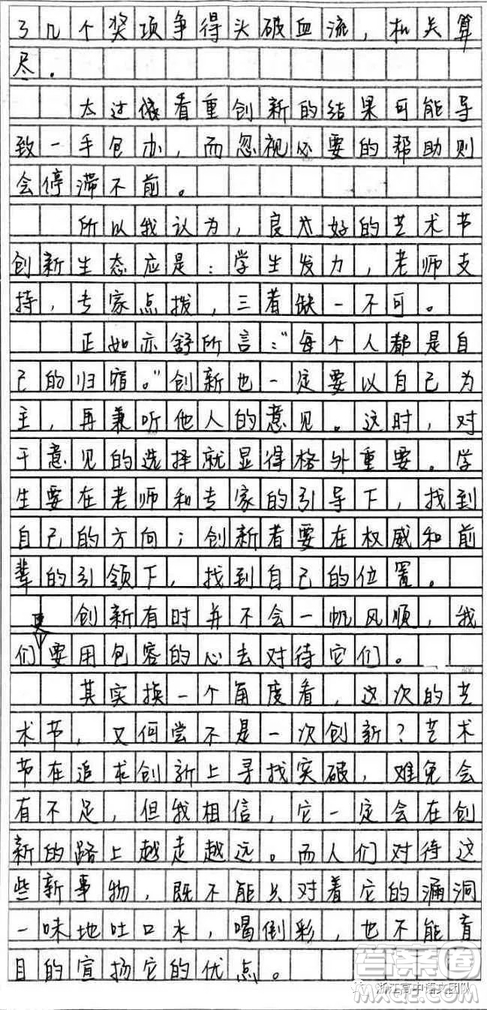 了几个奖项争得头破血流，机关算
尽。
太过依看重创新的结果可能导
致一手包办，而忽视必要的帮助则
会停滞不前。
所以我认为，良好的艺术节
创新生态应是：学生发力，老师支
持，专家点拨，三者缺一不可。
正如亦舒所言：“每个人都是自
己的归宿。”创新也一定要以自己为
主，再兼听他人的意见。这时，对
于意见的选择就显得格外重要。学
生要在老师和专家的引导下，找到
自己的方向；创新者要在权威和前
辈的引领下，找到自己的位置。
创新有时并不会一帆风顺，我
们更要用包容的心去对待它们。
其实换一个角度看，这次的艺
术节，又何尝不是一次创新？艺术
节在追求创新上寻找突破，难免会
有不足，但我相信，它一定会在创
新的路上越走越远。而人们对待这
些新事物，既不能只对着它的漏洞
一味地吐口水，喝倒彩，也不能盲
目的宣扬它的优点。
答案圈
MXQE.COM
浙江高中语文团队